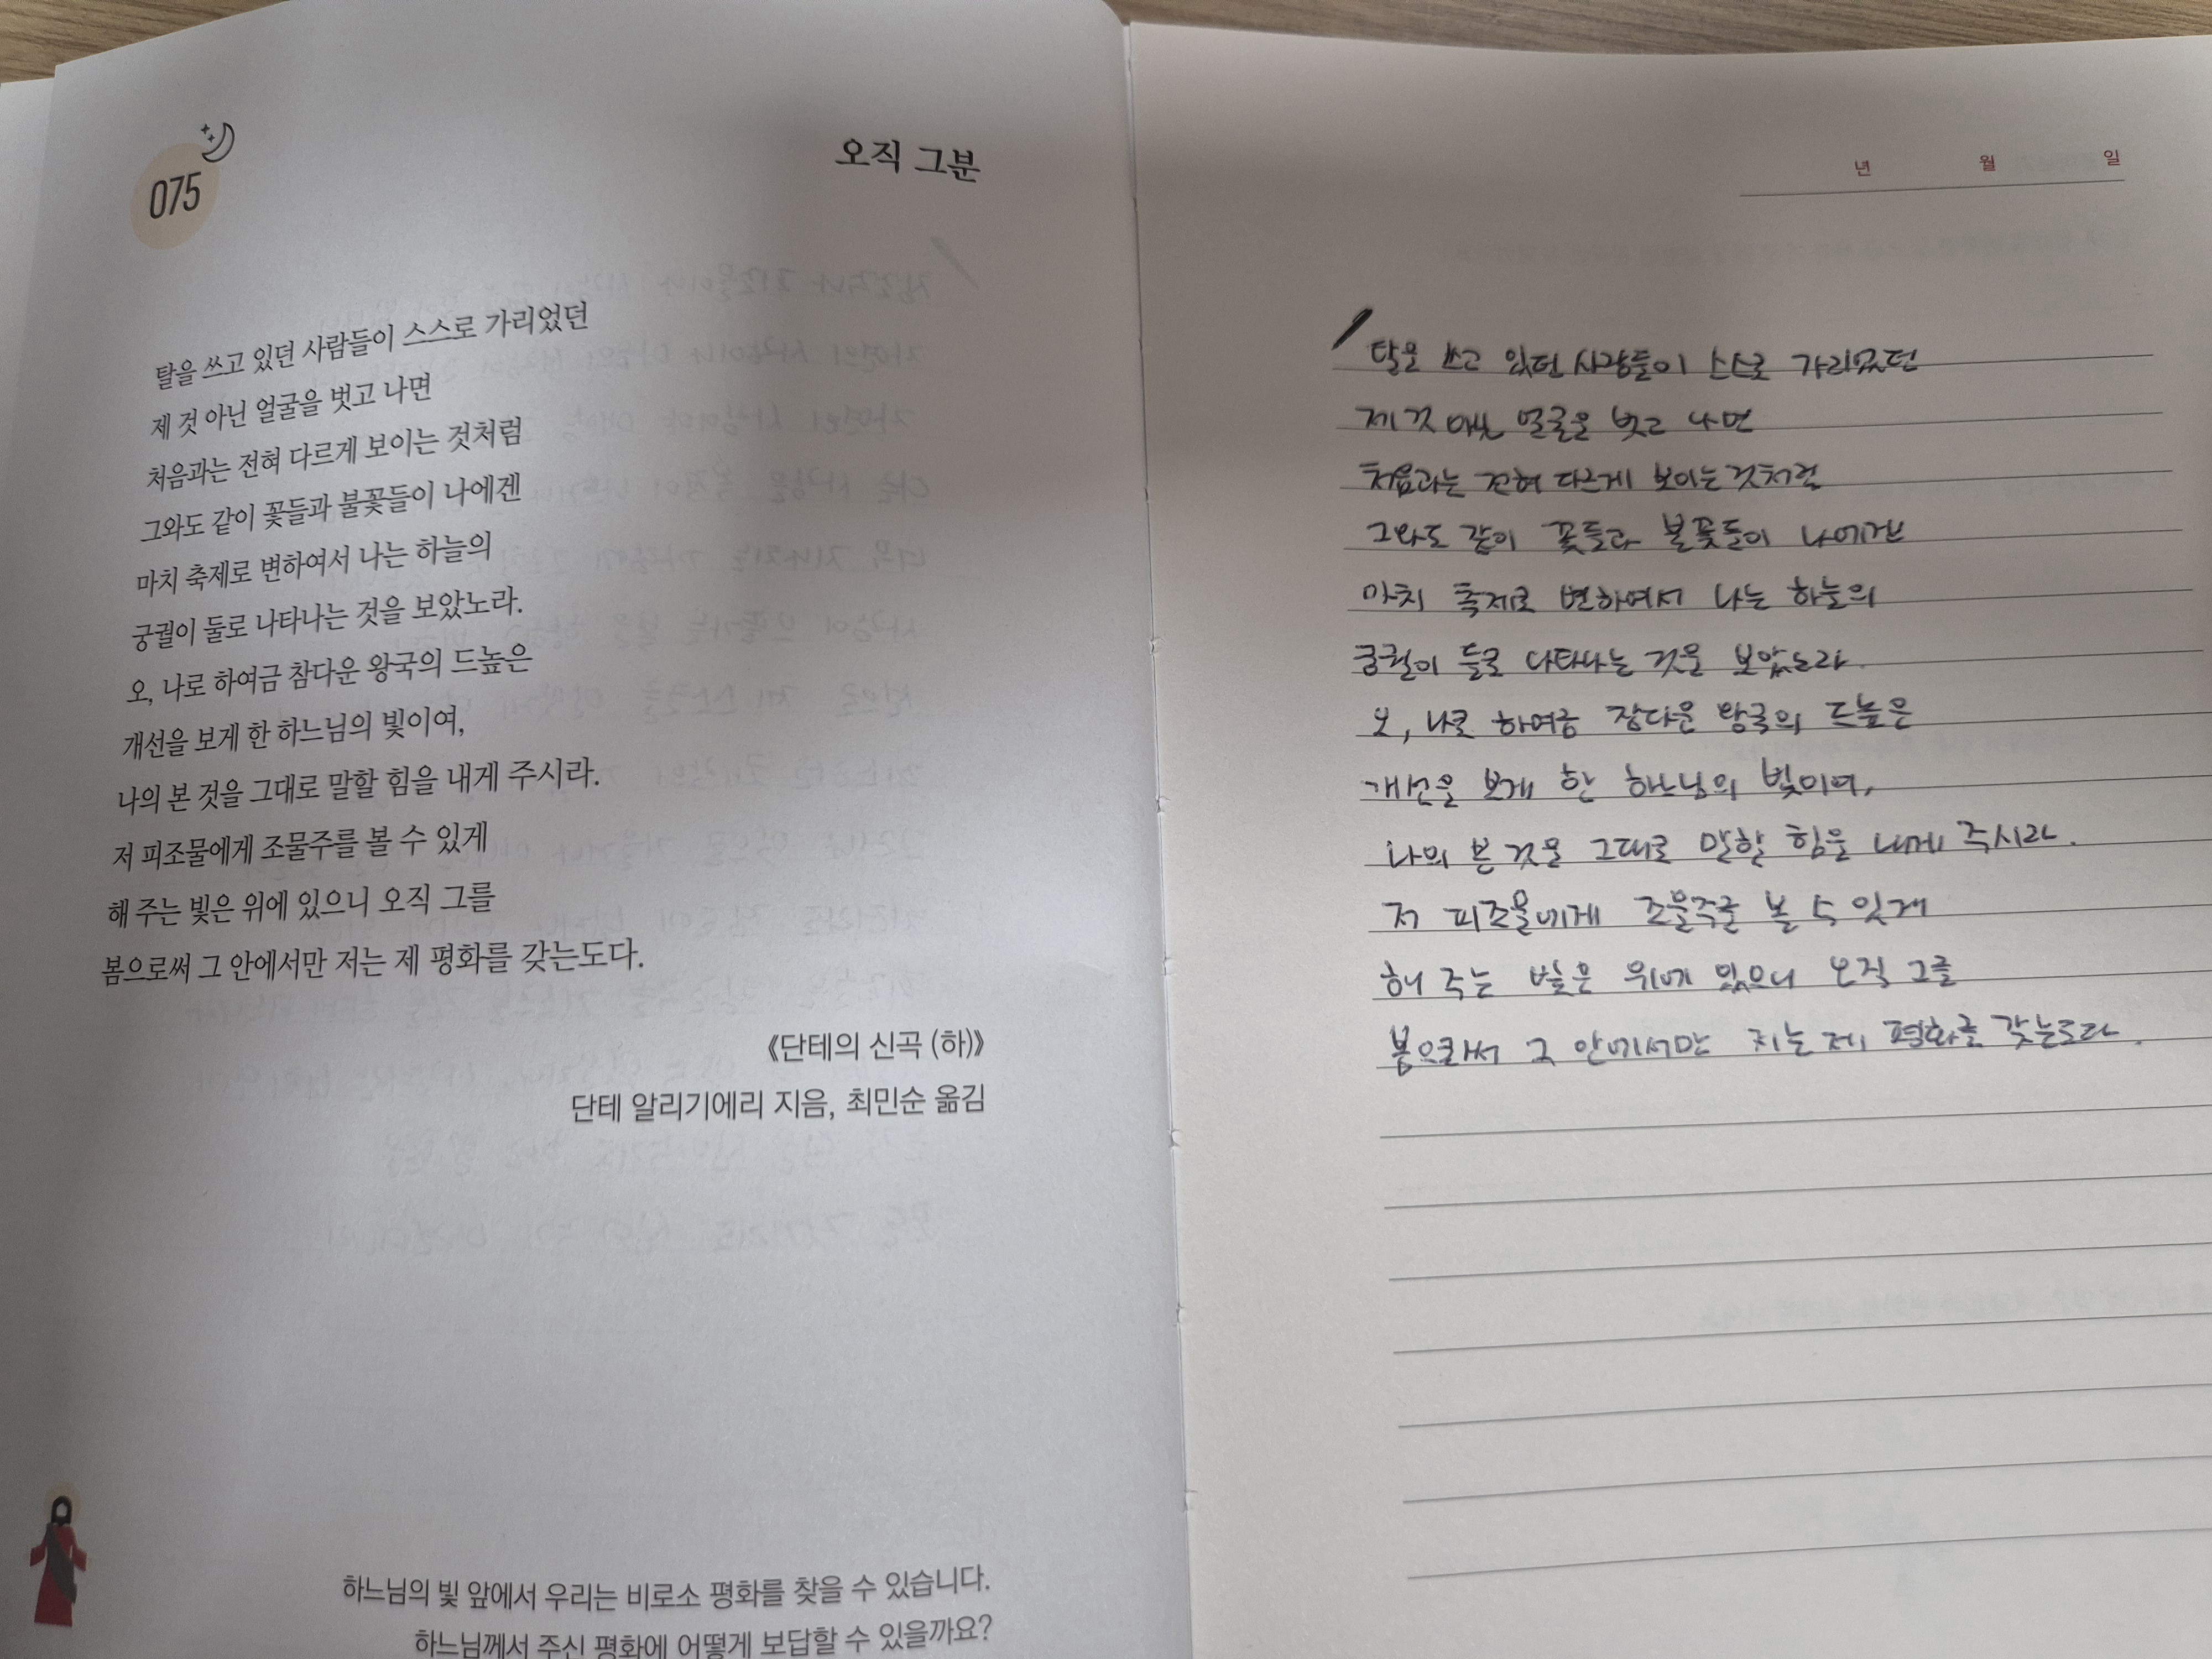 075
오직 그분
탈을 쓰고 있던 사람들이 스스로 가리었던
제 것 아닌 얼굴을 벗고 나면
처음과는 전혀 다르게 보이는 것처럼
그와도 같이 꽃들과 불꽃들이 나에겐
마치 축제로 변하여서 나는 하늘의
궁궐이 둘로 나타나는 것을 보았노라.
오, 나로 하여금 참다운 왕국의 드높은
개선을 보게 한 하느님의 빛이여,
나의 본 것을 그대로 말할 힘을 내게 주시라.
저 피조물에게 조물주를 볼 수 있게
해 주는 빛은 위에 있으니 오직 그를
봄으로써 그 안에서만 저는 제 평화를 갖는도다.
《단테의 신곡 (하)》
단테 알리기에리 지음, 최민순 옮김
하느님의 빛 앞에서 우리는 비로소 평화를 찾을 수 있습니다.
하느님께서 주신 평화에 어떻게 보답할 수 있을까요?
년 월 일
탈을 쓰고 있던 사람들이 스스로 가리었던
제 것 아닌 얼굴을 벗고 나면
처음과는 전혀 다르게 보이는 것처럼
그와도 같이 꽃들과 불꽃들이 나에겐
마치 축제로 변하여서 나는 하늘의
궁궐이 둘로 나타나는 것을 보았노라.
오, 나로 하여금 참다운 왕국의 드높은
개선을 보게 한 하느님의 빛이여,
나의 본 것을 그대로 말할 힘을 내게 주시라.
저 피조물에게 조물주를 볼 수 있게
해 주는 빛은 위에 있으니 오직 그를
봄으로써 그 안에서만 저는 제 평화를 갖는도다.